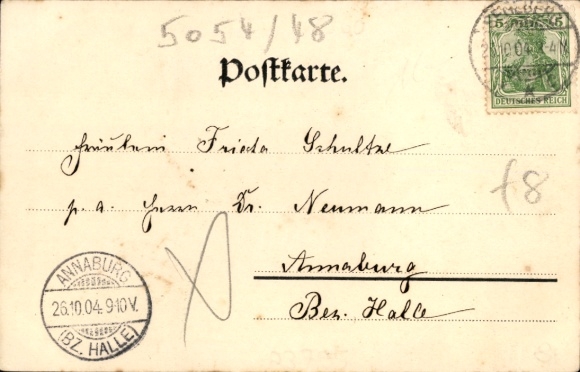 5054/48
Postkarte.
5 5
DEUTSCHES REICH
Fräulein Frieda Schultze
p. a. Herrn Dr. Neumann
f8
Annaburg
Bez. Halle
ANNABURG
26.10.04. 9-10 V.
(BZ. HALLE)